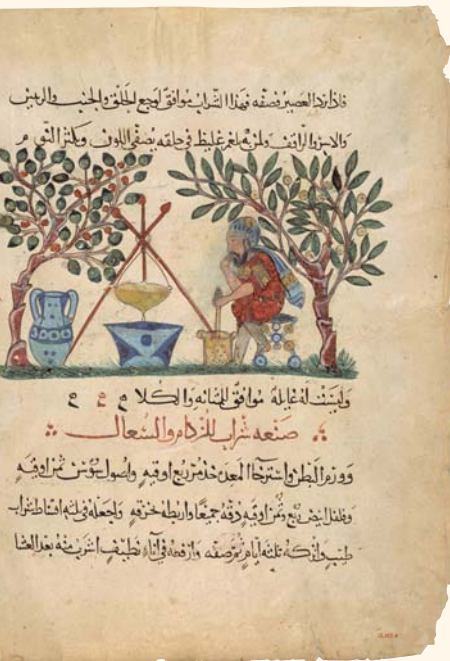 فاذا برد العصير فصفه فهذا الشراب موافق لوجع الحلق والجنب والرئتين
ولمن به بلغم غليظ في حلقه يصفي اللون ويكثر النوم
وليست له غايلة موافق للمثانه والكلا
صنعه شراب للزكام والسعال
وورم البطن واسترخا المعدن خذ مر ربع اوقيه واصول سوسن ثمن اوقيه
وفلفل ابيض ربع وثمن اوقيه دقه جميعا واربطه بخرقه واجعله في ثلثه اقساط شراب
طيب واتركه ثلثه ايام ثم صفه وارفعه في اناء نظيف اشرب منه بعد العشا